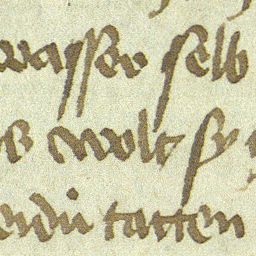 wasser selb
wolt sy
tatten